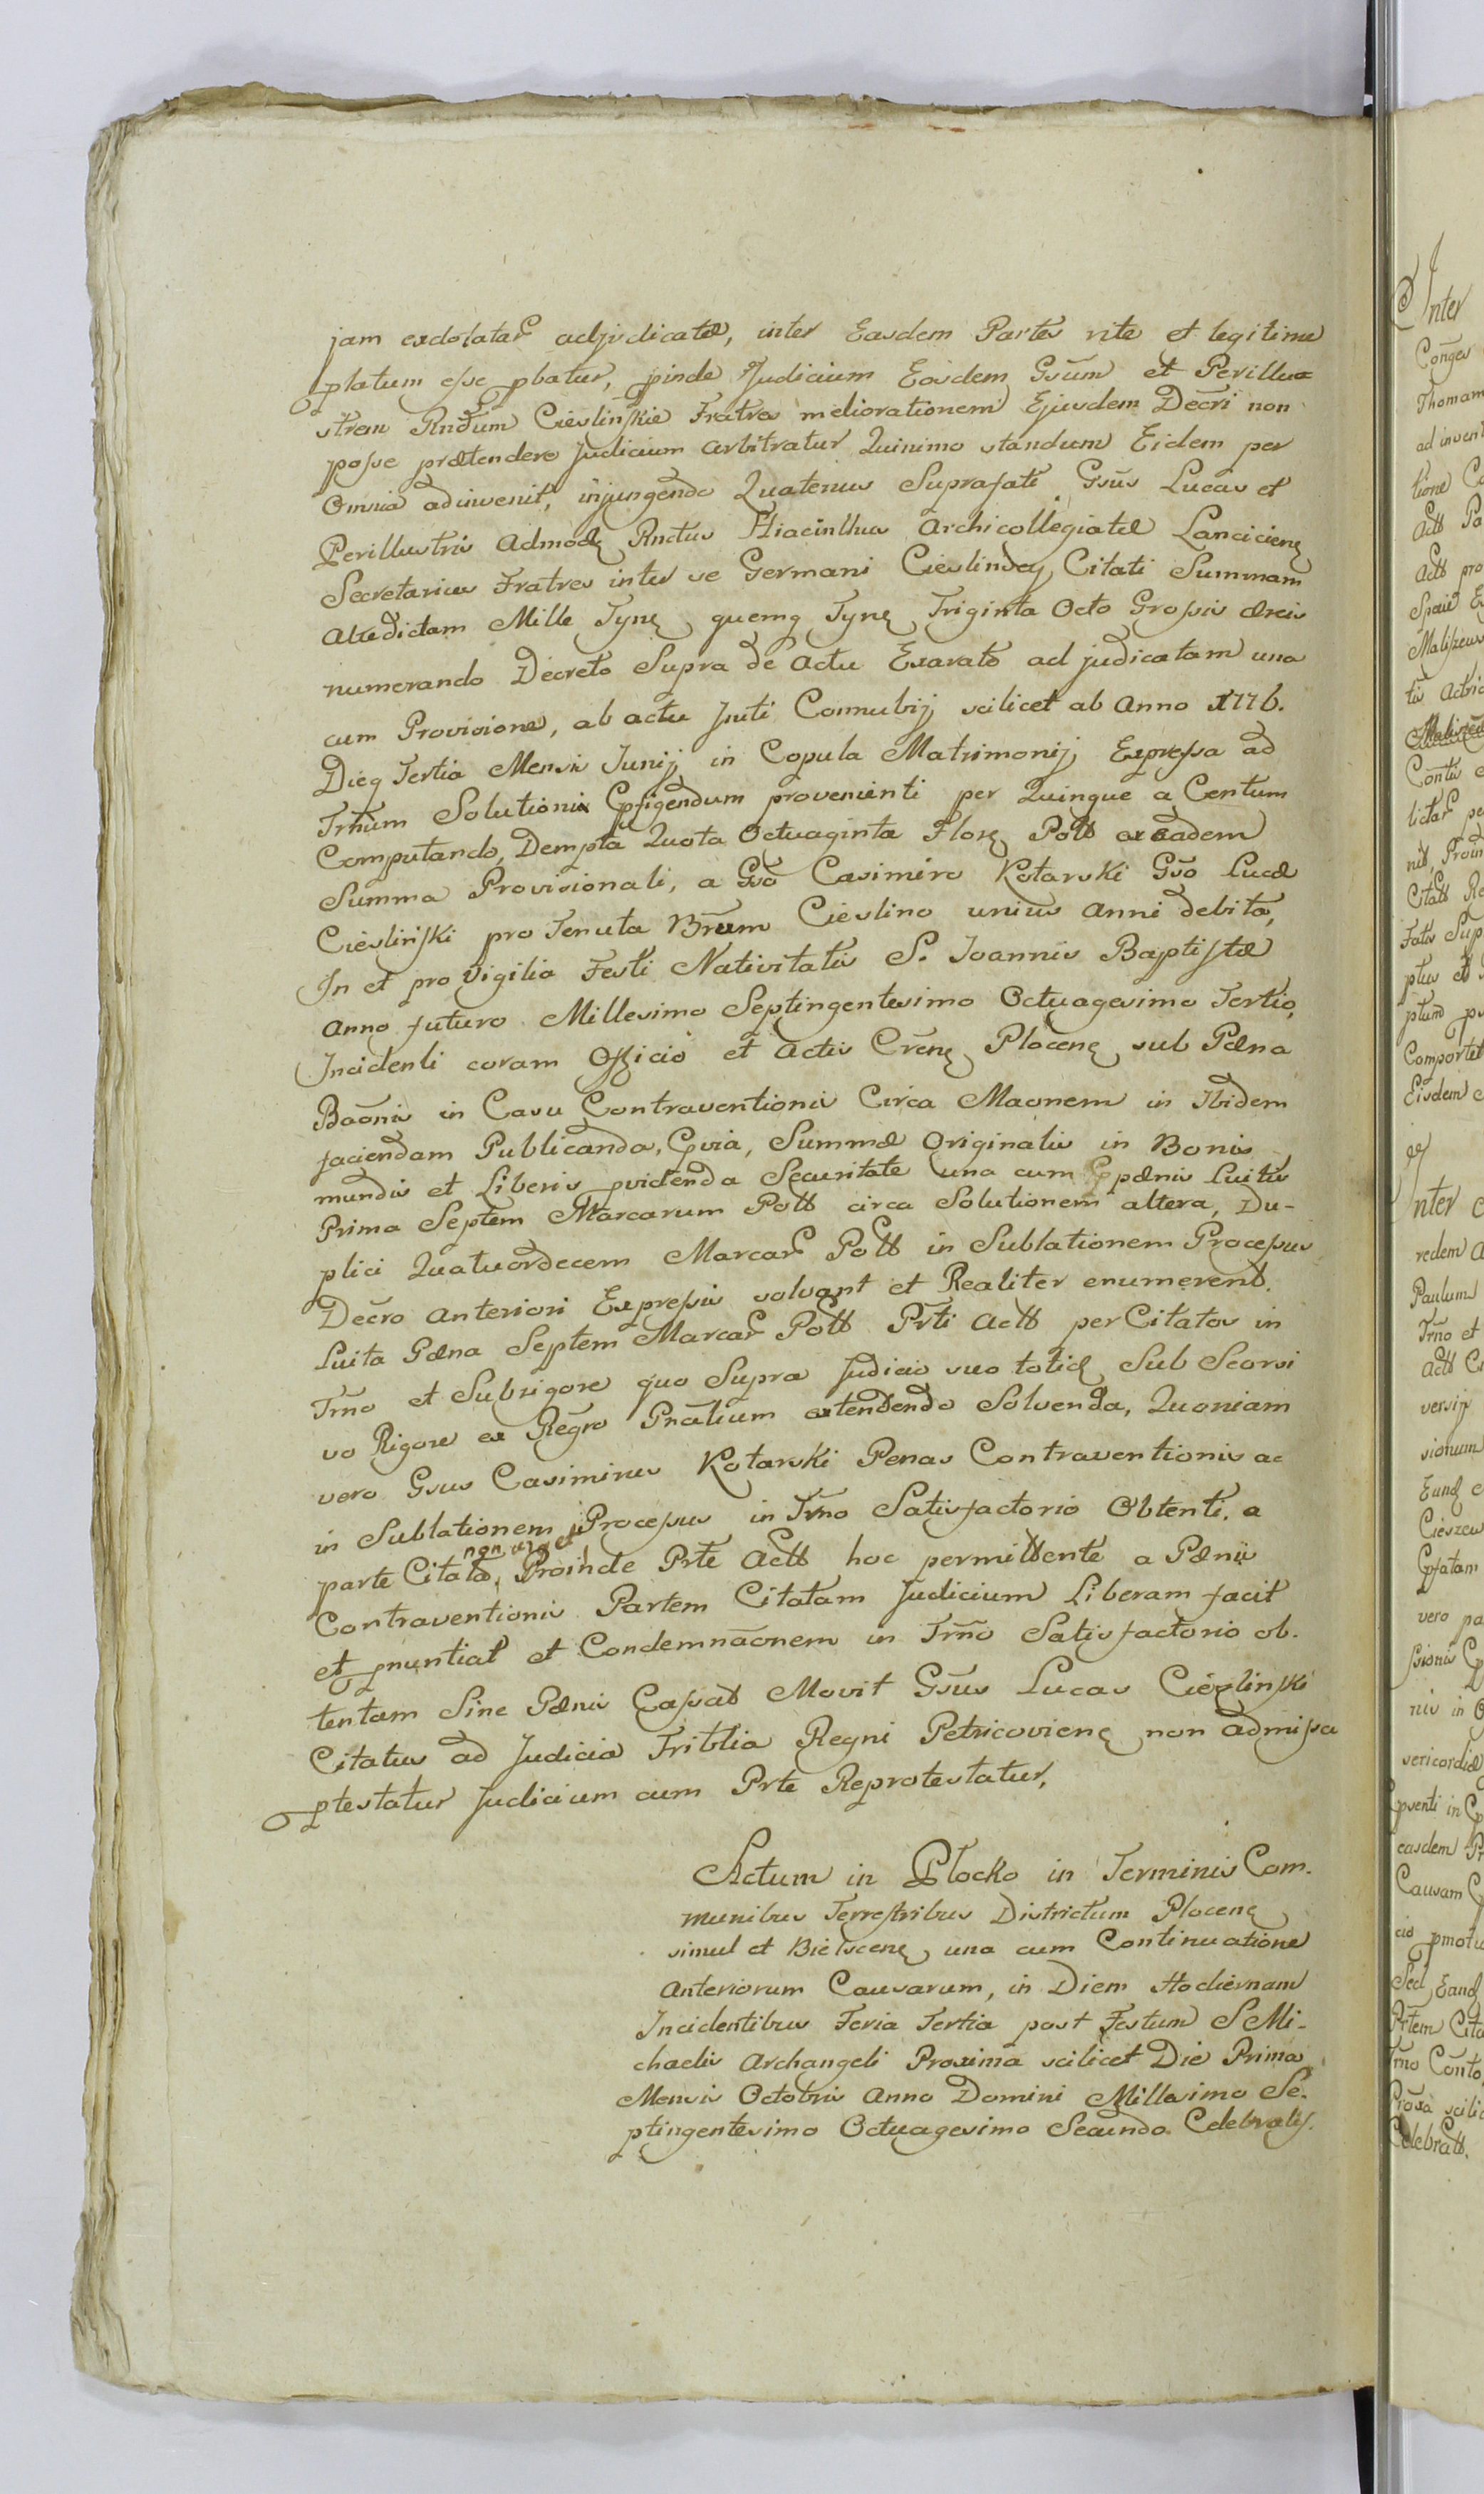 jam exdotatar adjudicatæ, inter Easdem Partes rite et legitime
platum esse pbatur, pinde Judicium Eosdem Gsūm et Perillu
strem Rndūm Cieslinskie Fratres meliorationem Ejusdem Decri non
posse prætendere Judicium arbitratur Quinimo standum Eidem per
Omnia adinvenit, injungendo Quatenus Suprafati Gsūs Lucas et
Perillustris Admodq Rnctus Hiacinthus Archicollegiatæ Lancicienę
Secretarius Fratres inter se Germani Cieslinscy Citati Summam
Attedictam Mille Tynę quemq Tynę Triginta Octo Grossis æreis
numerando Decreto Supra de Actu Exarato adjudicatam una
cum Provisione, ab actu Initi Connubij scilicet ab Anno 1776.
Dieq Tertia Mensis Junij in Copula Matrimonij Expressa ad
Trnūm Solutionis Cpfigendum provenienti per Quinque a Centum
Computando, Dempta Quota Octuaginta Florę Poll ex eadem
Summa Provisionali, a Gsō Casimiro Kotarski Gsō Lucæ
Ciesliński pro Tenuta Brūm Cieslino unius Anni debita,
In et pro Vigilia Festi Nativitatis S. Joannis Baptistæ
Anno futuro Millesimo Septingentesimo Octuagesimo Tertio,
Incidenti coram Officio et Actis Crēnę Plocenę sub Pæna
Baōnis in Casu Contraventionis Circa Maonem in Ibidem
faciendam Publicanda, Cpvia, Summæ Originalis in Bonis
mundis et Liberis pvidenda Securitate una cum Cppænis Luitis
Prima Septem Marcarum Poll circa Solutionem altera, Du-
plici Quatuordecem Marcar Poll in Sublationem Processus
Decro Anteriori Expressis solvant et Realiter enumerent.
Luita Pæna Septem Marcar Poll Prti Actt per Citatos in
Trno et Subrigore quo Supra Judicio suo totidę Sub Scorsi
vo Rigore ex Regro Pnālium extendendo Solvenda, Quoniam
vero Gsus Casimirus Kotarski Penas Contraventionis ac
in Sublationem Processus in Trno Satisfactorio Obtenti, a
parte Citata, non urget Proinde Prte Actt hoc permittente a Pænis
Contraventionis Partem Citatam Judicium Liberam facit
et pnuntiat et Condemnāonem in Trnō Satisfactorio ob-
tentam Sine Pænis Cassat Movit Gsūs Lucas Cieslinski
Citatus ad Judicia Triblia Regni Petricovienę non admissa
ptestatur Judicium cum Prte Reprotestatur,
Actum in Plocko in Terminis Com-
munibus Terrestribus Districtum Plocenę
simul et Bielscenę una cum Continuatione
Anteriorum Causarum, in Diem Hodiernam
Incidentibus Feria Tertia post Festum S Mi-
chaelis Archangeli Proxima scilicet Die Prima
Mensis Octobris Anno Domini Millesimo Se-
ptingentesimo Octuagesimo Secundo Celebratis.
Inter
Conges
Thomam
ad inven
tione
Actt
Actt pro
Comportet
Eisdem
Inter
redem
Paulum
Trno et
Actt
vero pa
sericordiæ
easdem
Causam
Celebratt.